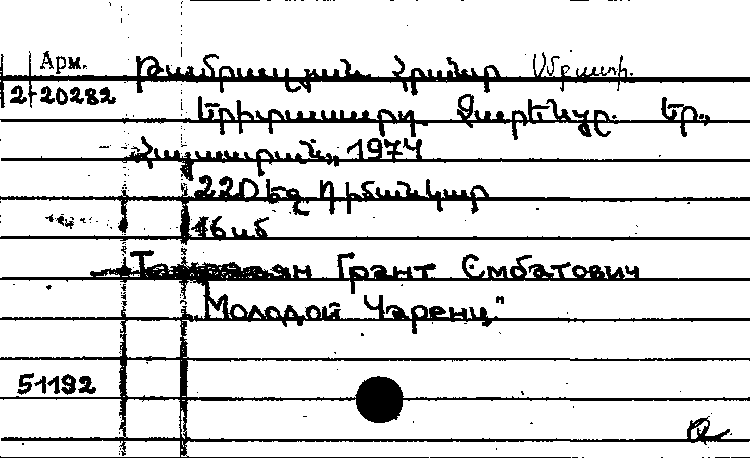 Арм.
Թամրազյան Հրանտ Սմբատի.
2-20282
Երիտասարդ Չարենցը. Եր.,
Հայաստան, 1974
220 եզ դիմանկար
16 սմ
Тамразян Грант Смбатович
"Молодой Чаренц"
51192